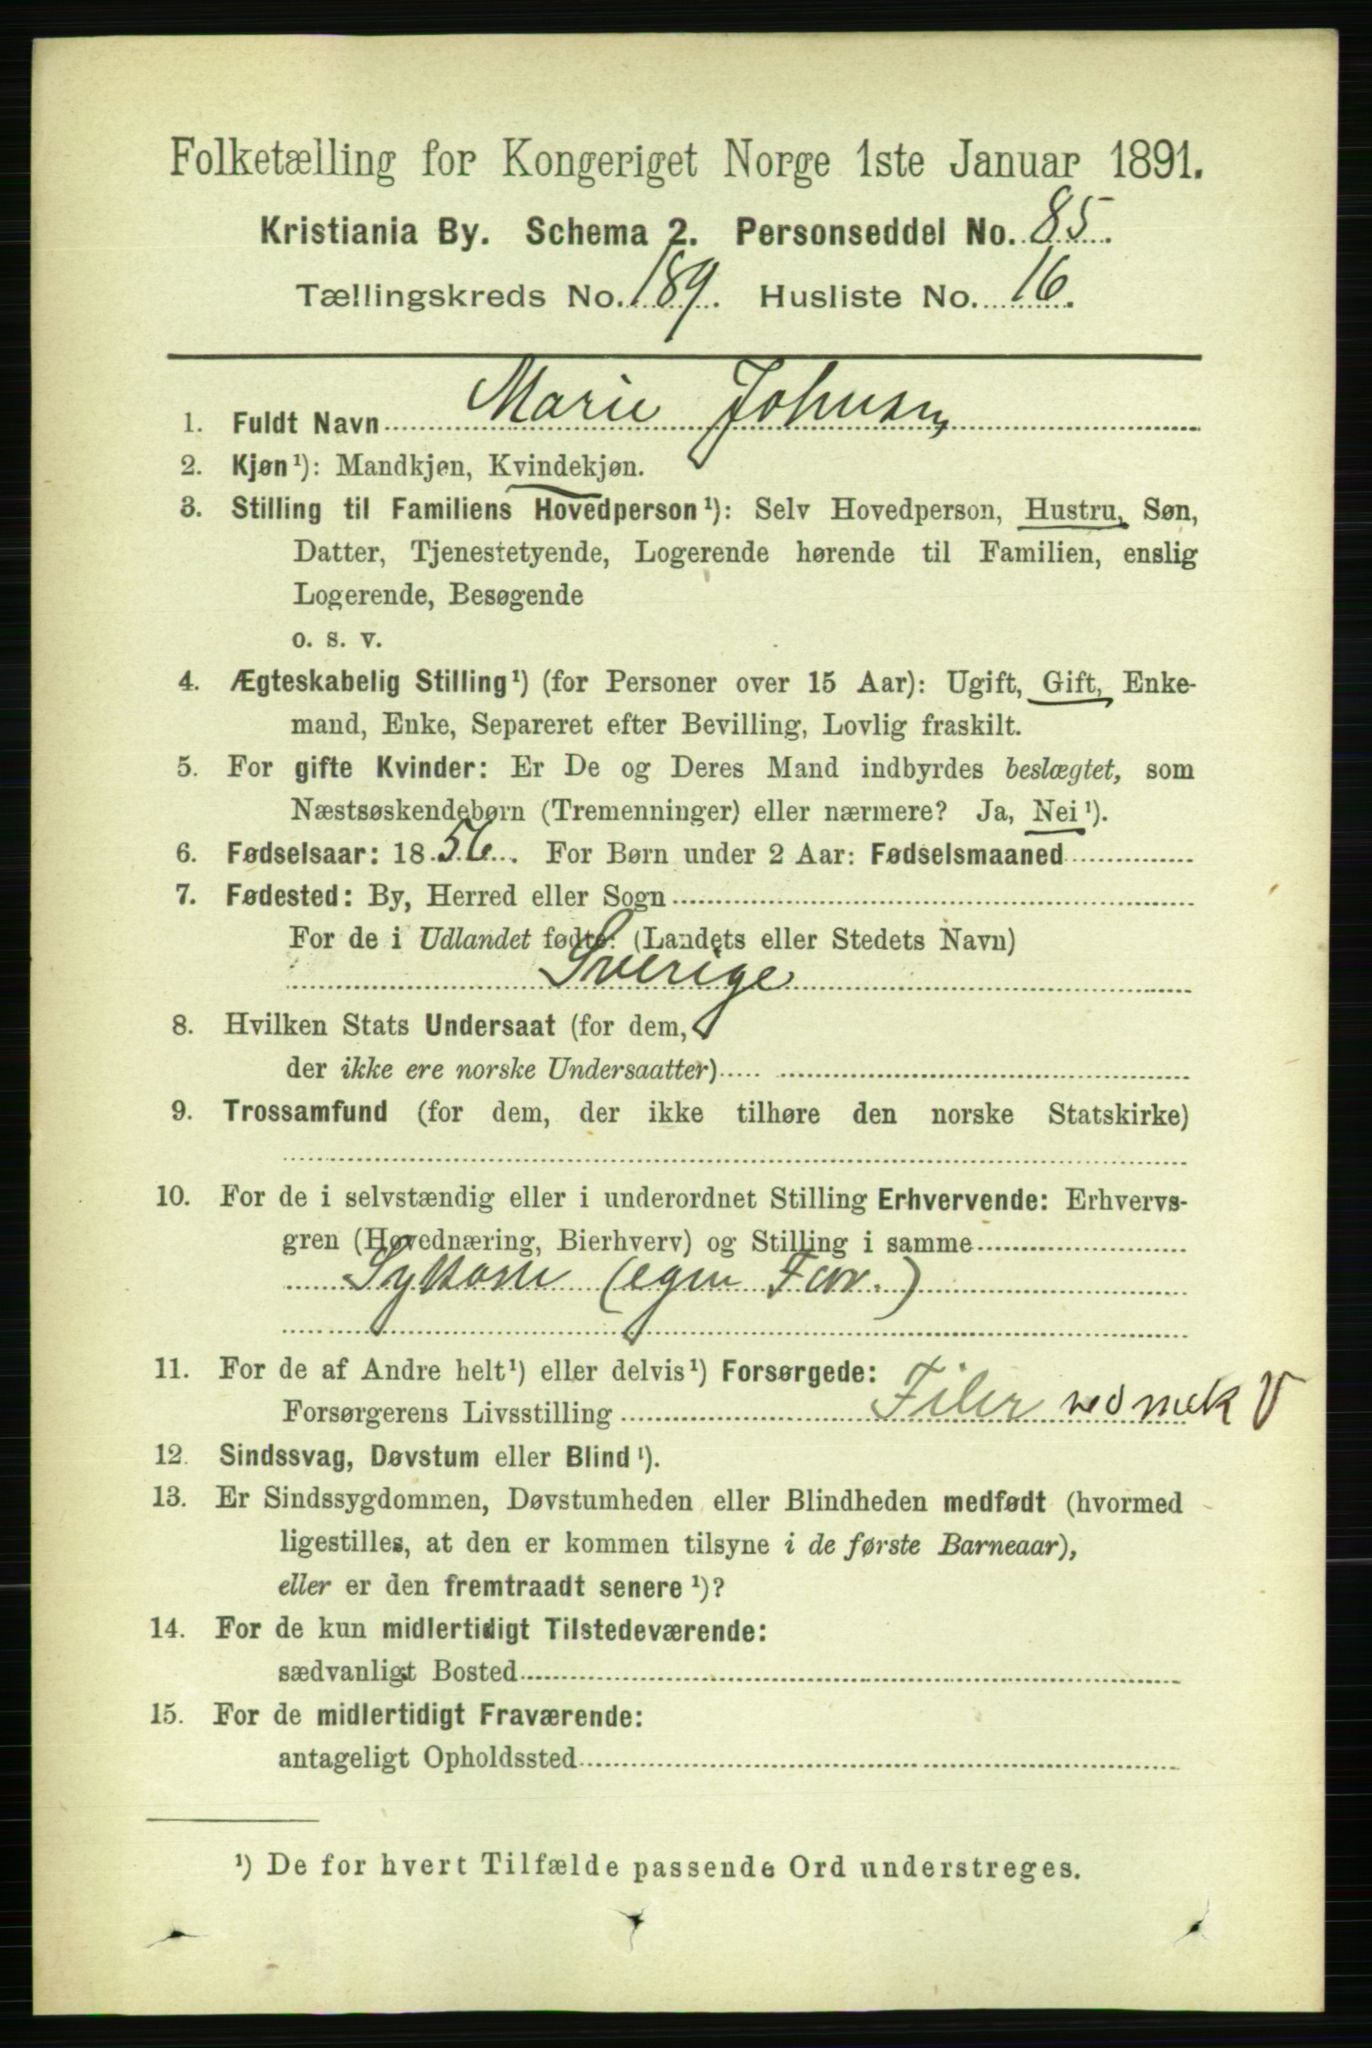 Folketælling for Kongeriget Norge 1ste Januar 1891.
Kristiania By. Schema 2. Personseddel No. 85.
Tællingskreds No. 189. Husliste No. 16.
1. Fuldt Navn Marie Johnsen
2. Kjøn¹): Mandkjøn, Kvindekjøn.
3. Stilling til Familiens Hovedperson¹): Selv Hovedperson, Hustru, Søn,
Datter, Tjenestetyende, Logerende hørende til Familien, enslig
Logerende, Besøgende
o. s. v.
4. Ægteskabelig Stilling¹) (for Personer over 15 Aar): Ugift, Gift, Enke-
mand, Enke, Separeret efter Bevilling, Lovlig fraskilt.
5. For gifte Kvinder: Er De og Deres Mand indbyrdes beslægtet, som
Næstsøskendebørn (Tremenninger) eller nærmere? Ja, Nei¹).
6. Fødselsaar: 1856. For Børn under 2 Aar: Fødselsmaaned
7. Fødested: By, Herred eller Sogn
For de i Udlandet fødte: (Landets eller Stedets Navn)
Sverige
8. Hvilken Stats Undersaat (for dem,
der ikke ere norske Undersaatter)
9. Trossamfund (for dem, der ikke tilhøre den norske Statskirke)
10. For de i selvstændig eller i underordnet Stilling Erhvervende: Erhvervs-
gren (Hovednæring, Bierhverv) og Stilling i samme
(egen For.)
11. For de af Andre helt¹) eller delvis¹) Forsørgede:
Forsørgerens Livsstilling Filer ved mek V
12. Sindssvag, Døvstum eller Blind¹).
13. Er Sindssygdommen, Døvstumheden eller Blindheden medfødt (hvormed
ligestilles, at den er kommen tilsyne i de første Barneaar),
eller er den fremtraadt senere¹)?
14. For de kun midlertidigt Tilstedeværende:
sædvanligt Bosted
15. For de midlertidigt Fraværende:
antageligt Opholdssted
¹) De for hvert Tilfælde passende Ord understreges.